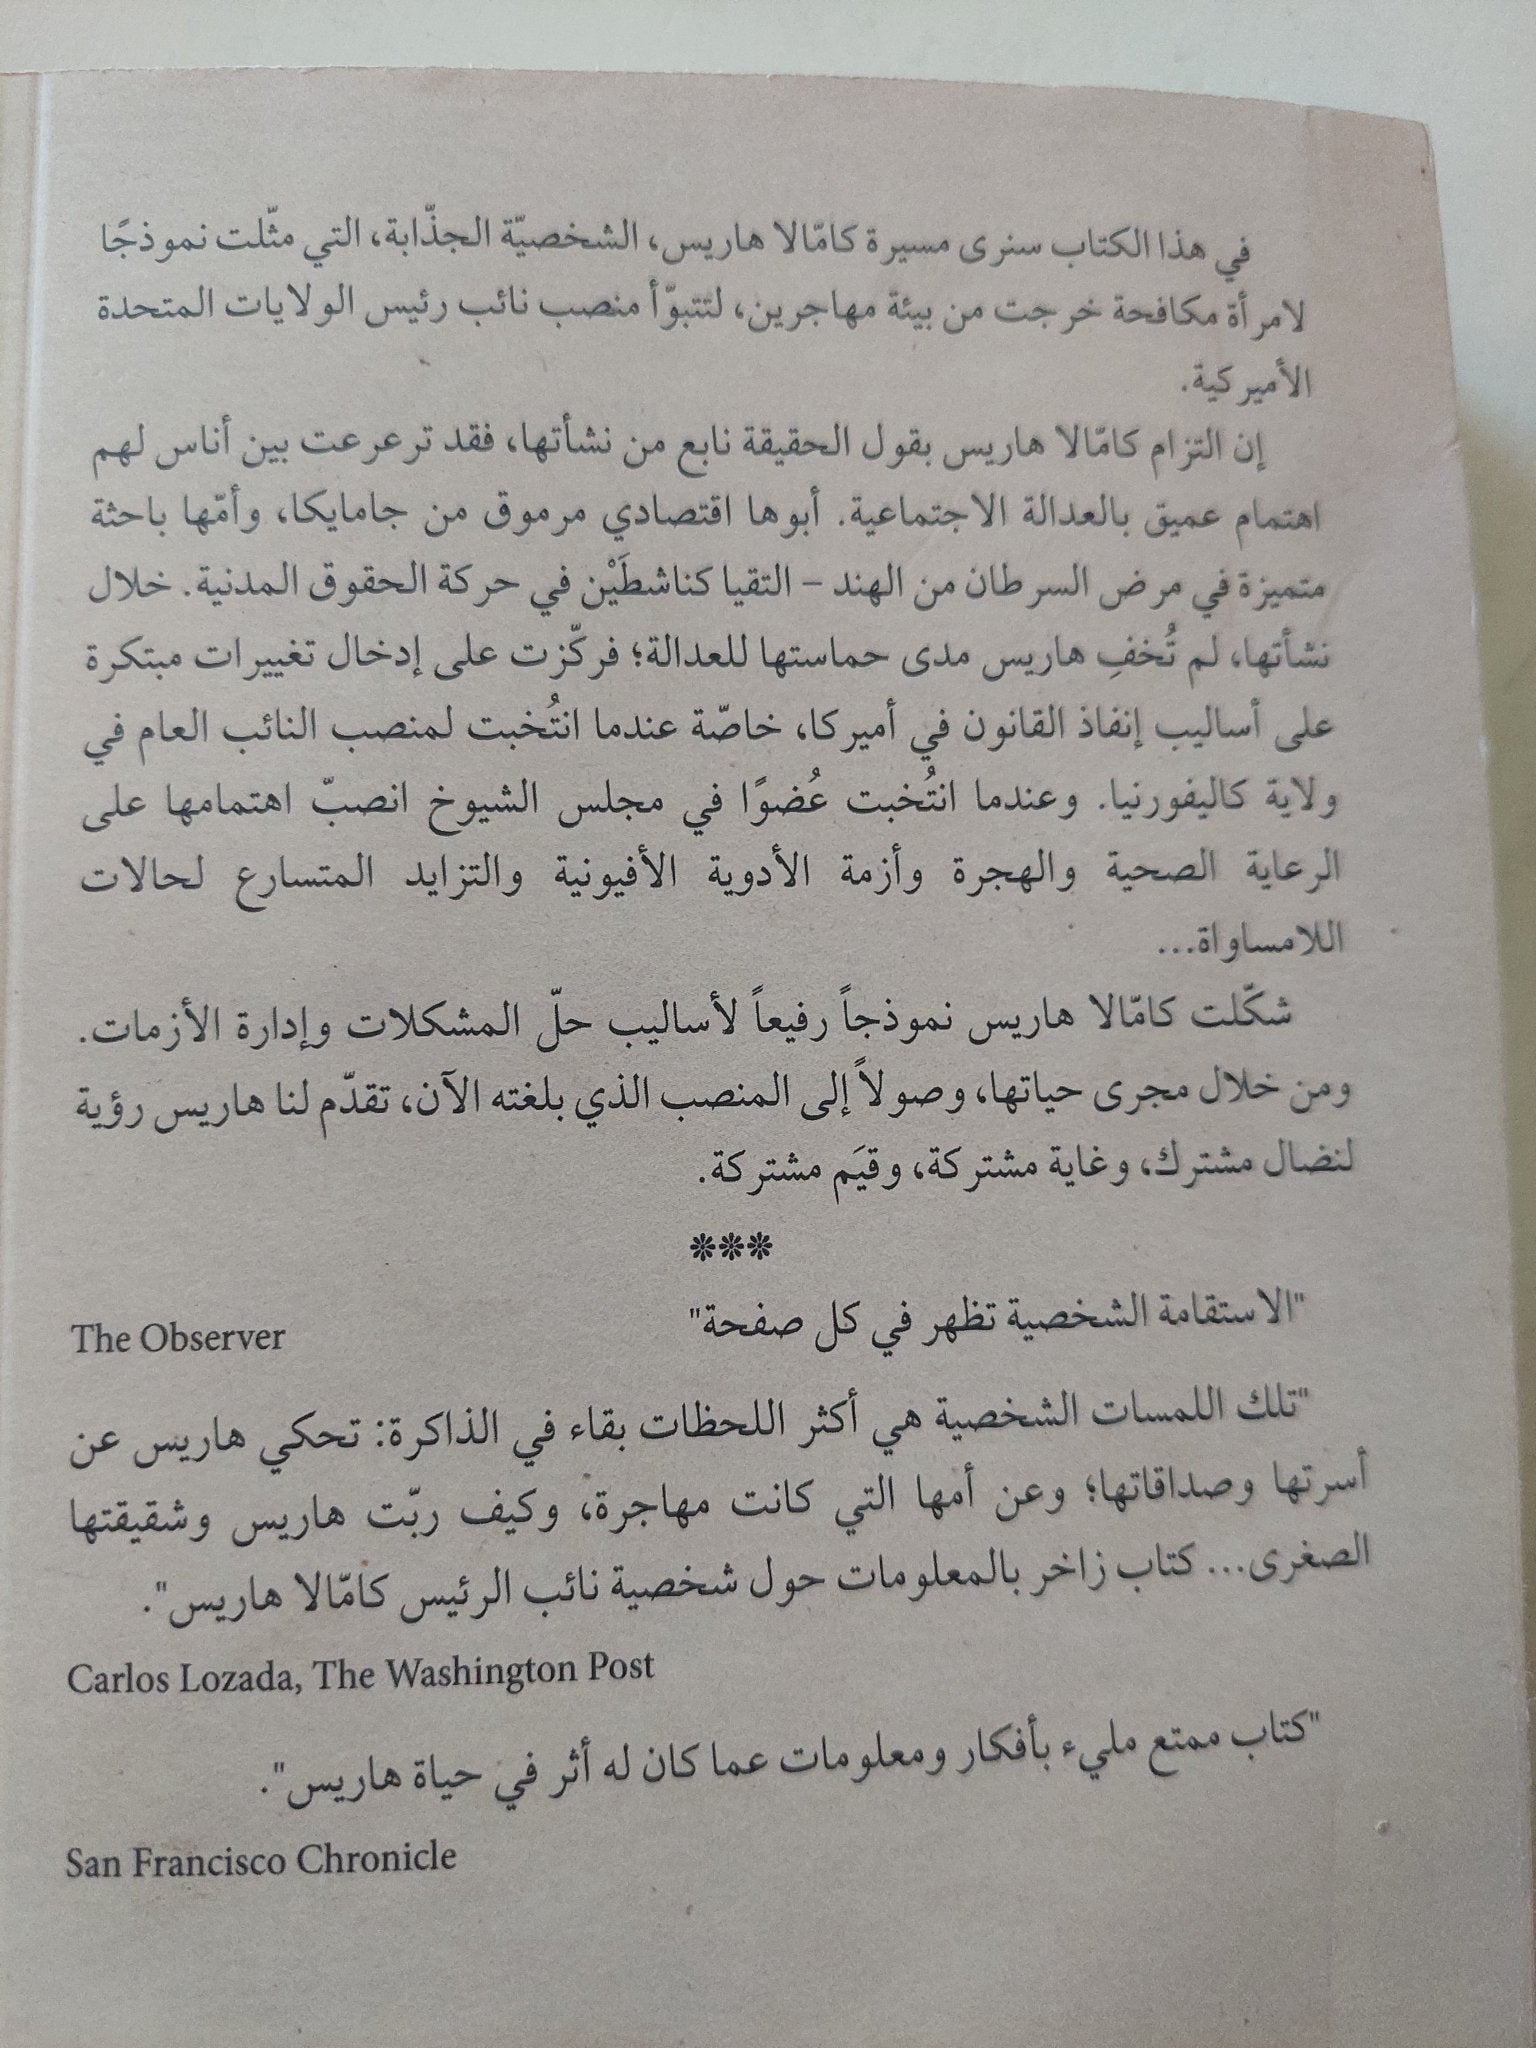 في هذا الكتاب سنرى مسيرة كامّالا هاريس، الشخصيّة الجذّابة، التي مثّلت نموذجًا
لامرأة مكافحة خرجت من بيئة مهاجرين، لتتبوّأ منصب نائب رئيس الولايات المتحدة
الأميركية.
إن التزام كامّالا هاريس بقول الحقيقة نابع من نشأتها، فقد ترعرعت بين أناس لهم
اهتمام عميق بالعدالة الاجتماعية. أبوها اقتصادي مرموق من جامايكا، وأمّها باحثة
متميزة في مرض السرطان من الهند – التقيا كناشطَيْن في حركة الحقوق المدنية. خلال
نشأتها، لم تُخفِ هاريس مدى حماستها للعدالة؛ فركّزت على إدخال تغييرات مبتكرة
على أساليب إنفاذ القانون في أميركا، خاصّة عندما انتُخبت لمنصب النائب العام في
ولاية كاليفورنيا. وعندما انتُخبت عُضوًا في مجلس الشيوخ انصبّ اهتمامها على
الرعاية الصحية والهجرة وأزمة الأدوية الأفيونية والتزايد المتسارع لحالات
اللامساواة...
شكّلت كامّالا هاريس نموذجاً رفيعاً لأساليب حلّ المشكلات وإدارة الأزمات.
ومن خلال مجرى حياتها، وصولاً إلى المنصب الذي بلغته الآن، تقدّم لنا هاريس رؤية
لنضال مشترك، وغاية مشتركة، وقيَم مشتركة.
***
"الاستقامة الشخصية تظهر في كل صفحة" The Observer
"تلك اللمسات الشخصية هي أكثر اللحظات بقاء في الذاكرة: تحكي هاريس عن
أسرتها وصداقاتها؛ وعن أمها التي كانت مهاجرة، وكيف ربّت هاريس وشقيقتها
الصغرى... كتاب زاخر بالمعلومات حول شخصية نائب الرئيس كامّالا هاريس".
Carlos Lozada, The Washington Post
"كتاب ممتع مليء بأفكار ومعلومات عما كان له أثر في حياة هاريس".
San Francisco Chronicle